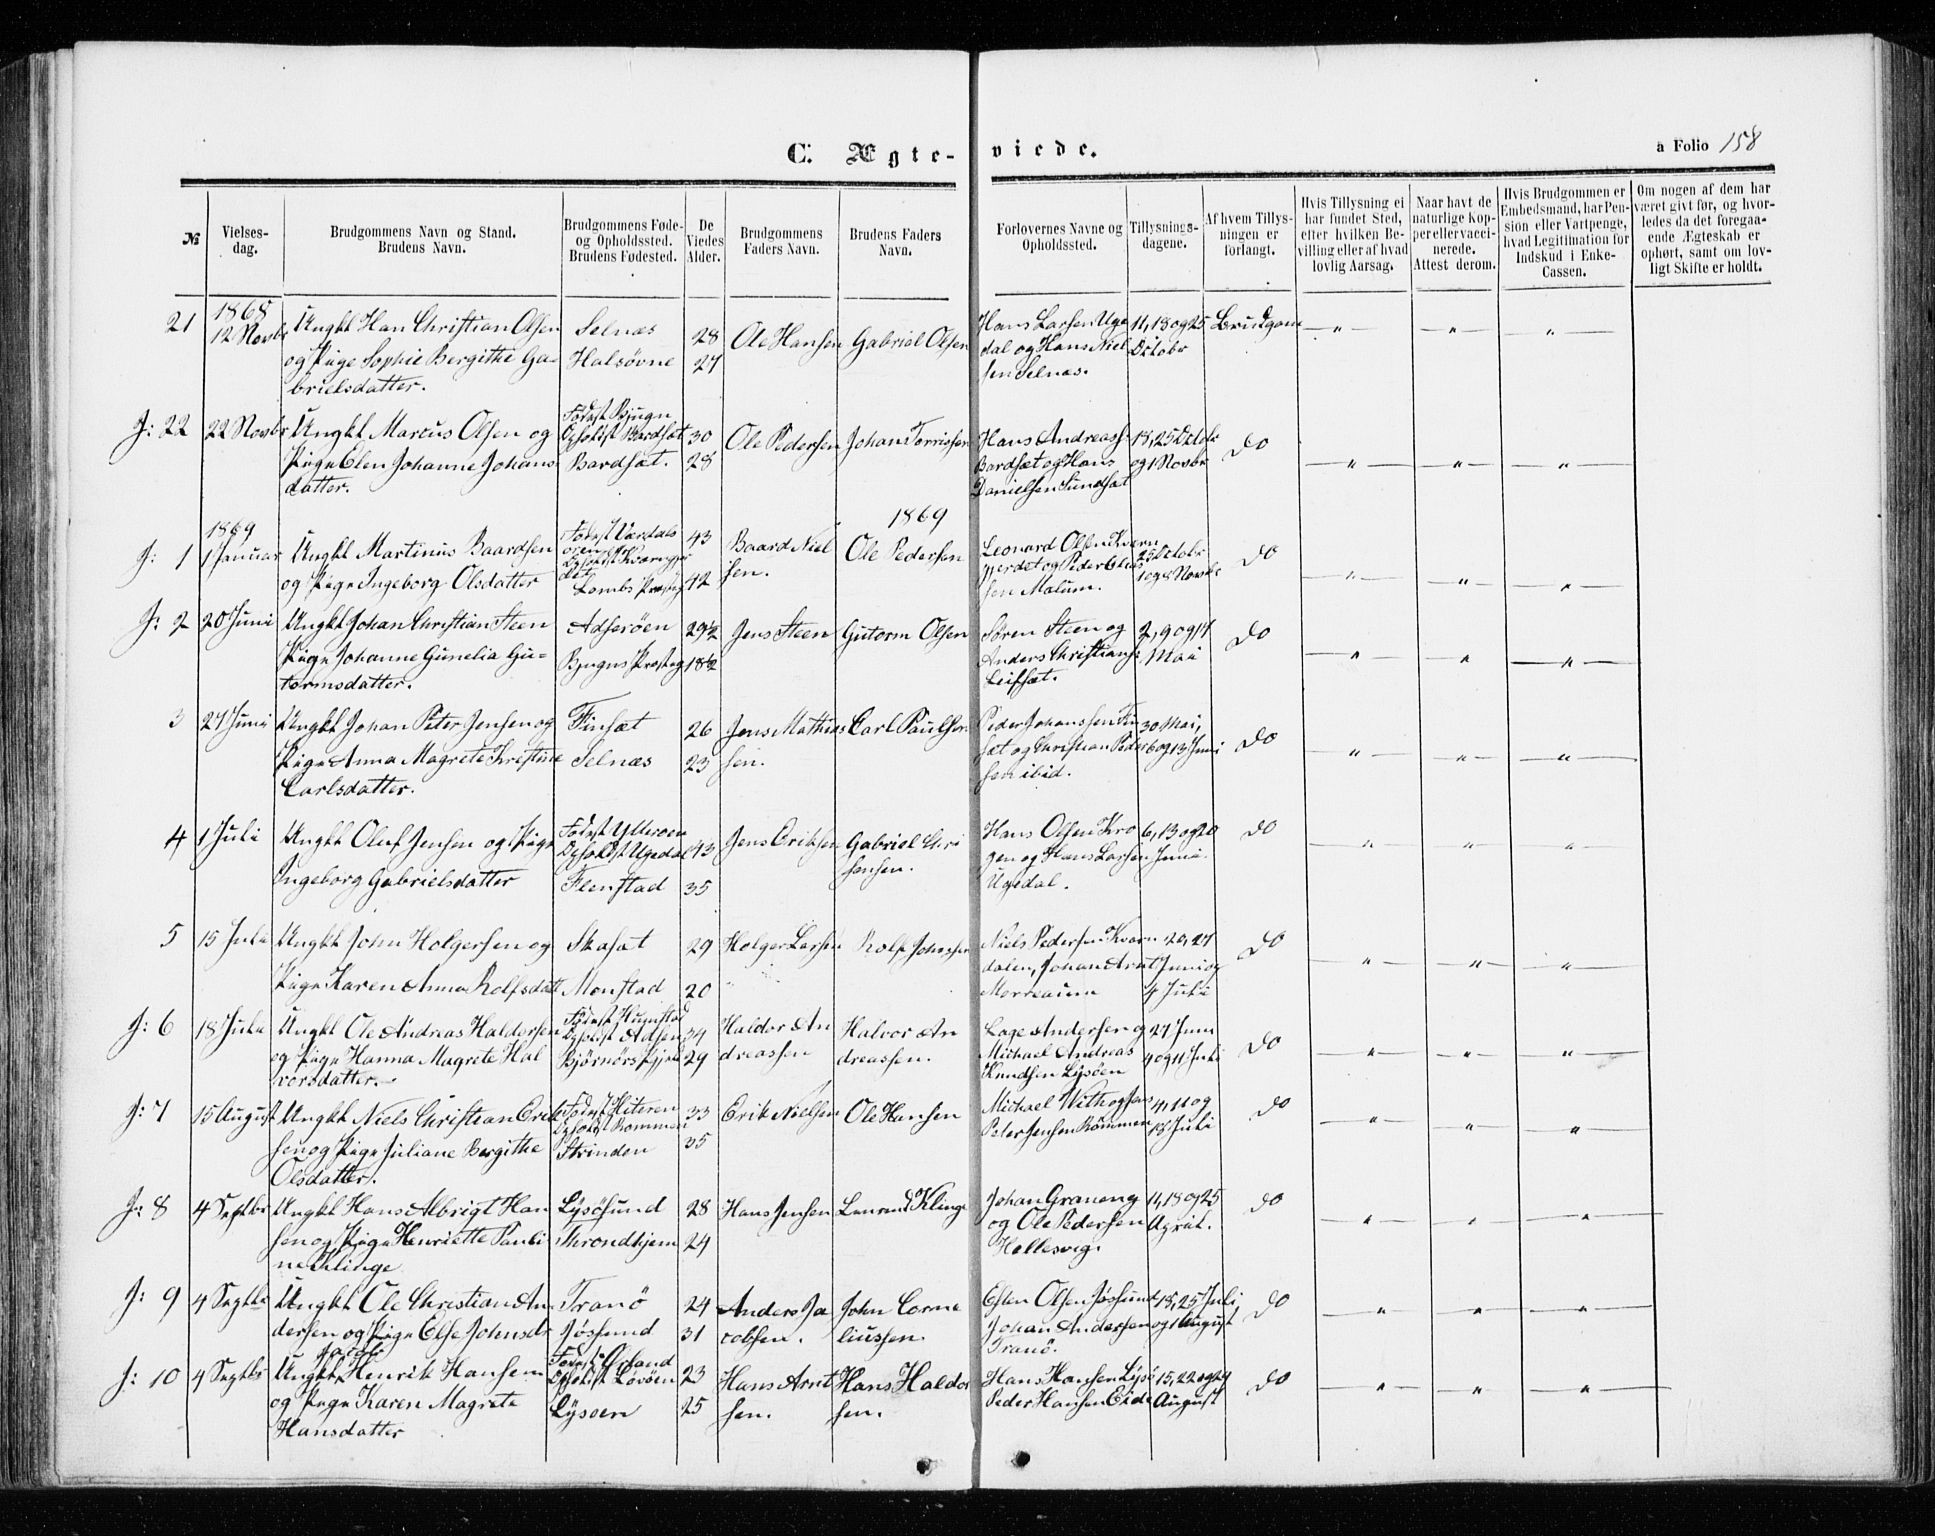 C. Ægte-
viede.
a Folio 158
№
Vielses-
dag.
Brudgommens Navn og Stand.
Brudens Navn.
Brudgommens Føde-
og Opholdssted.
Brudens Fødested.
De
Viedes
Alder.
Brudgommens
Faders Navn.
Brudens Faders
Navn.
Forlovernes Navne og
Opholdssted.
Tillysnings-
dagene.
Af hvem Tillys-
ningen er
forlangt.
Hvis Tillysning ei
har fundet Sted,
efter hvilken Be-
villing eller af hvad
lovlig Aarsag.
Naar havt de
naturlige Kop-
per eller vacci-
nerede.
Attest derom.
Hvis Brudgommen er
Embedsmand, har Pen-
sion eller Vartpenge,
hvad Legitimation for
Indskud i Enke-
Cassen.
Om nogen af dem har
været givt før, og hvor-
ledes da det foregaa-
ende Ægteskab er
ophørt, samt om lov-
ligt Skifte er holdt.
21
1868
12 Novbr
Ungkl Han Christian Olsen
og Pige Sophie Bergithe Ga-
brielsdatter.
Selnæs
Halsøvne
28
27
Ole Hansen
Gabriel Olsen
Hans Larsen Uge
dal og Hans Niel
sen Selnæs.
11, 18 og 25
Octobr
Brudgom
J: 22
22 Novbr
Ungkl Marcus Olsen og
Pige Elen Johanne Johans
datter.
Fødest Bjugn
Opholdst Bardsæt
Bardsæt.
30
28
Ole Pedersen
Johan Torrissen
Hans Andreass.
Bardsæt og Hans
Danielsen Sundsæt
18, 25 Octobr
og 1 Novbr
Do
J: 1
1869
1 Januar
Ungkl Martinus Baardsen
og Pige Ingeborg Olsdatter
Fødest Værdals
øren
Lembs Præstg
43
42
Baard Niel
sen.
1869
Ole Pedersen
Leonard Olsen Kvern
gjerdet og Peder Olas
sen Malum.
25 Octobr
1 og 8 Novbr
Do
J: 2
20 Juni
Ungkl Johan Christian Steen
Pige Johanne Gunelia Gu-
tormsdatter.
Adserøen
Bjugns Præsteg
29½
18½
Jens Steen
Gutorm Olsen
Søren Steen og
Anders Christians.
Leifsæt.
2, 9 og 17
Mai
Do
3
27 Juni
Ungkl Johan Peter Jensen og
Pige Anna Magrete Kristine
Carlsdatter.
Finsæt
Selnæs
26
23
Jens Mathias
sen.
Carl Paulsen
Peder Johanssen Fin
sæt og Christian Peder
sen ibid.
30 Mai,
6 og 13 Juni
Do
4
1 Juli
Ungkl Oluf Jensen og Pige
Ingeborg Gabrielsdatter
Fødest Ytterøen
Opholdst Ugedal
Flenstad
43
35
Jens Eriksen
Gabriel Chri
sensen.
Hans Olsen Kro
gen og Hans Larsen
Ugedal.
6, 13 og 20
Juni.
Do
5
15 Juli
Ungkl John Holgersen og
Pige Karen Anna Rolfsdatt
Skasæt
Monstad
29
20
Holger Larsen
Rolf Johnsen
Niels Pedersen Kvern
dalen, Johan Arnt
Morreaunn
20, 27
Juni og
4 Juli
Do
J: 6
18 Juli
Ungkl Ole Andreas Haldorsen
og Pige Hanna Magrete Hal
vorsdatter.
Fødest Humstad
Opholdst Adsen
Bjørnørs Pgjeld
34
29
Haldor An
dreassen
Halvor An
dreassen.
Lage Andersen og
Michael Andreas
Knudsen Lysøen
27 Juni
4 og 11 Juli
Do
J: 7
15 August
Ungkl Niels Christian Erik
sen og Pige Juliane Bergithe
Olsdatter.
Fødest Hiteren
Opholdst Rommen
Strinden
33
35
Erik Nielsen
Ole Hansen
Michael With og Jens
Peter Jensen Rømmen
4, 11 og
18 Juli
Do
J: 8
4 Septbr
Ungkl Hans Albrigt Han
sen og Pige Henriette Pauli
ne Klinge
Lysøsund
Throndhjem
28
24
Hans Jensen
Laurend Klinge
Johan Graneng
og Ole Pedersen
Hellesvig.
11, 18 og 25
April.
Do
J: 9
4 Septbr
Ungkl Ole Christian An
dersen og Pige Else Johnsdr
Tranø
Jøssund
24
31
Anders Ja
cobsen.
John Corne
liussen.
Esten Olsen Jøssund
Johan Andersen
Tranø.
18, 25 Juli
og 1 August
Do
J: 10
4 Septbr
Jacob
Ungkl Henrik Hansen
og Pige Karen Magrete
Hansdatter
Fødest Ørland
Opholdst Løvøen
Lysøen
23
25
Hans Arnt
sen.
Hans Haldor
sen.
Hans Hansen Lysø
Peder Hansen Eide
15, 22 og 29
August
Do